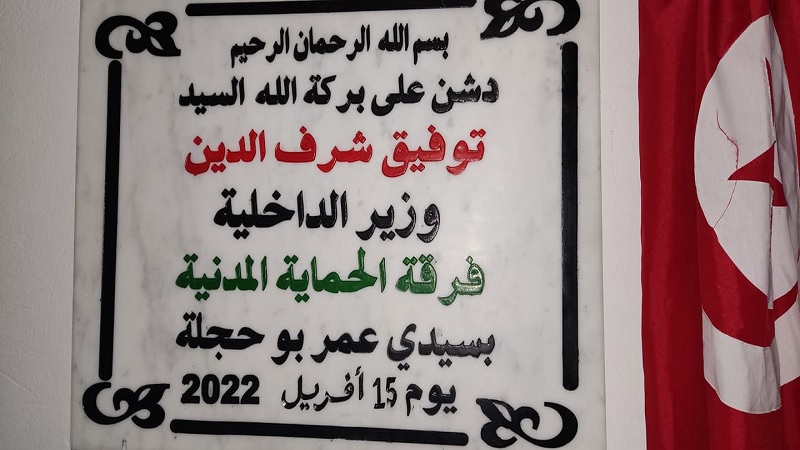 بسم الله الرحمان الرحيم
دشن على بركة الله السيد
توفيق شرف الدين
وزير الداخلية
فرقة الحماية المدنية
بسيدي عمر بو حجلة
يوم 15 أفريل 2022